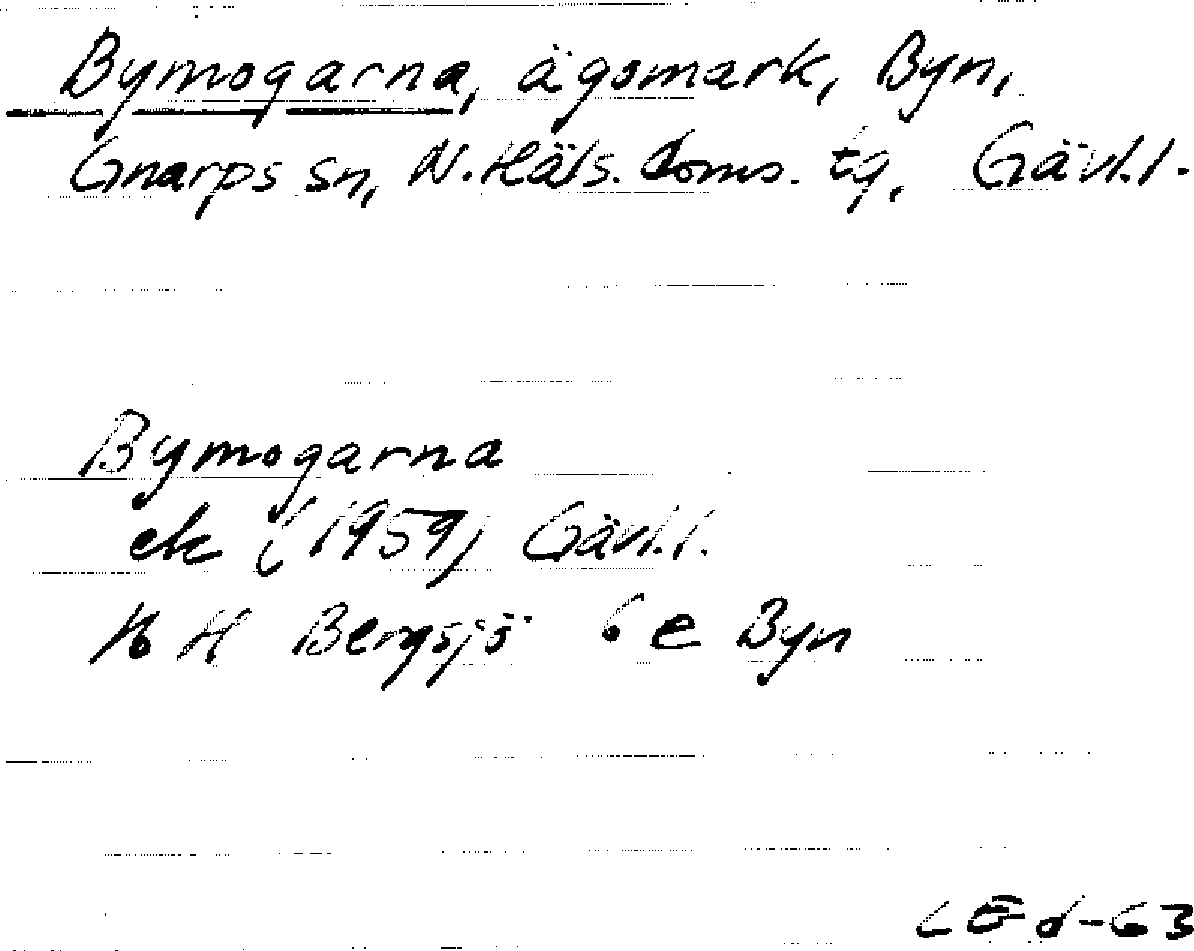 Bymogarna, ägomark, Byn,
Gnarps sn, N. Häls. doms. tg, Gävl.l.
Bymogarna
ek (1959) Gävl.l.
16 H Bergsjö 6 e Byn
-63